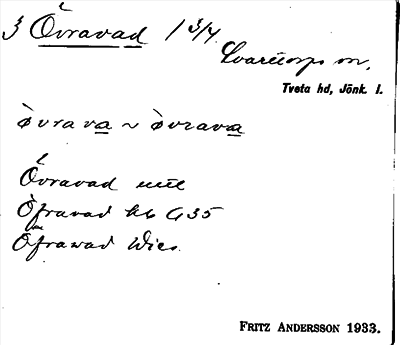 3 Övravad 1 3/4
Svarttorps sn,
Tveta hd, Jönk. l.
òvrava ~ òvrava
Övravad
Öfravad hb G 35
Öfrawad Wies
FRITZ ANDERSSON 1933.